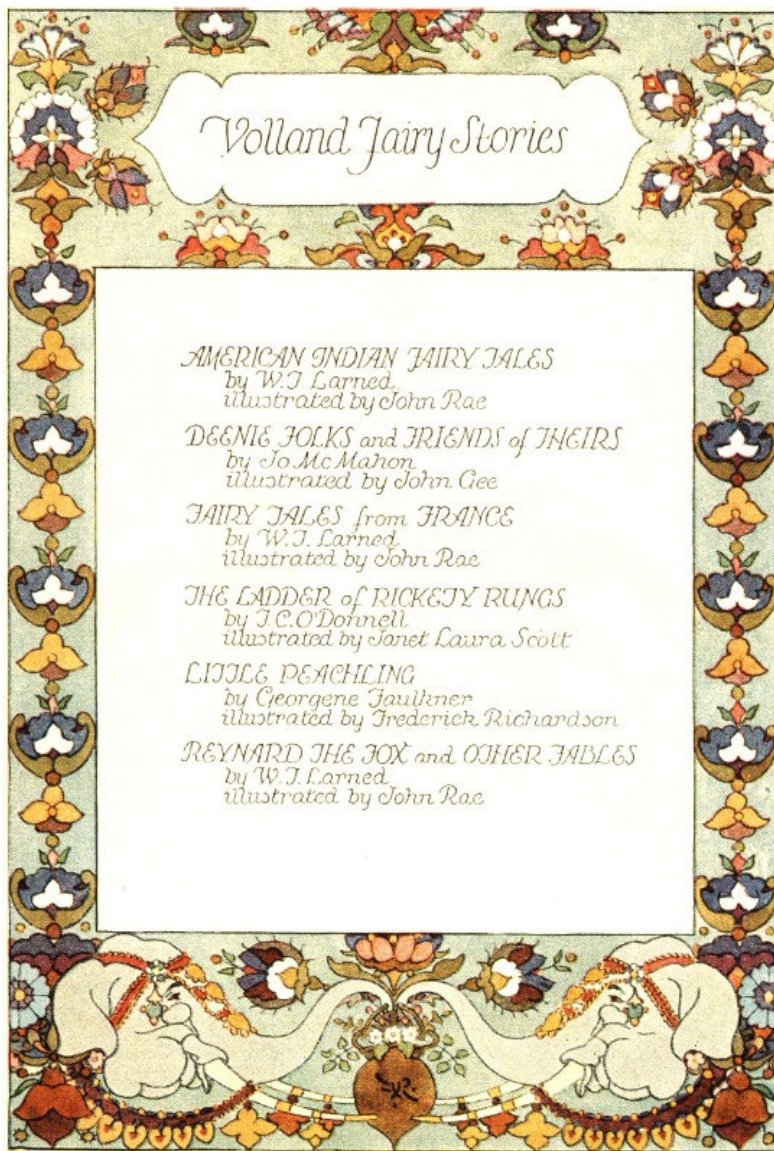 Volland Fairy Stories
AMERICAN INDIAN FAIRY TALES
by W.T. Larned
illustrated by John Rae
DEENIE FOLKS and FRIENDS of THEIRS
by Jo Mc Mahon
illustrated by John Gee
FAIRY TALES from FRANCE
by W.T. Larned
illustrated by John Rae
THE LADDER of RICKETY RUNGS
by T.C. O'Donnell
illustrated by Janet Laura Scott
LITTLE PEACHLING
by Georgene Faulkner
illustrated by Frederick Richardson
REYNARD THE FOX and OTHER FABLES
by W.T. Larned
illustrated by John Rae